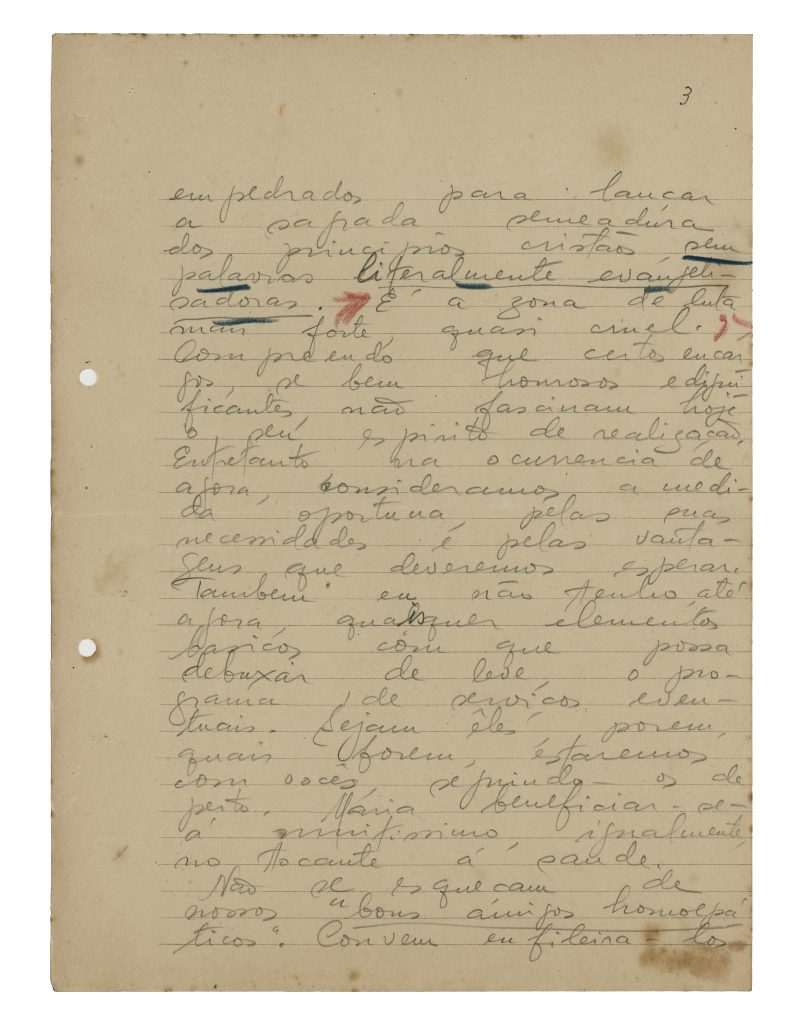 3
empedrados para lançar
a sagrada semeadúra
dos principios cristãos sem
palavras literalmente evángeli-
sadoras. É a zona de luta
mais forte, quasi cruel.
Compreendo que certos encar
gos, se bem honrosos e digni
ficantes, não fascinam hoje
o seu espirito de realização.
Entretanto na ocurrencia de
agora, consideramos a medi-
da oportuna, pelas suas
necessidades é pelas vanta-
gens que deveremos esperar.
Tambem eu não tenho, até
agora, quaisquer elementos
basicos com que possa
debuxar de leve, o pro-
grama de serviços even-
tuais. Sejam êles, porem,
quais forem, estaremos
com vocês, seguindo-os de
perto. Maria beneficiar-se-
á muitissimo, igualmente,
no tocante á saude.
Não se esqueçam de
nossos "bons ámigos homoepá
ticos". Convem enfileira-los